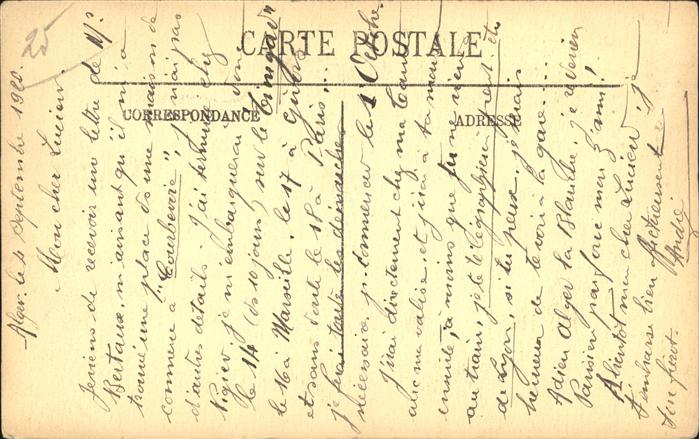 25
CARTE POSTALE
CORRESPONDANCE
ADRESSE
Alger, le 4 Septembre 1920.
Mon cher Lucien.
Je viens de recevoir une lettre de Mr
Bertaux m'avisant qu'il m'a
trouvé une place ds une maison de
commerce à "Courbevoie", je n'ai pas
d'autres détails. J'ai terminé chez
Vigier je m'embarquerai donc
le 14 (ds 10 jours) sur le "Timgad"
le 16 à Marseille, le 17 à
et sans doute le 18 à Paris...
je ferai toutes les démarches
nécessaires p. commencer le 1 Octobre.
J'irai directement chez ma tante
avec ma valise et j'irai à ta
ensuite, à moins que tu ne viennes
au train, je te télégraphierai
de Lyon, si tu peux, je serais
heureux de te voir à la gare....
Adieu Alger la Blanche, je deviens
Parisien par force mais
A bientôt mon cher Lucien, je
t'embrasse bien
Ton frère. André